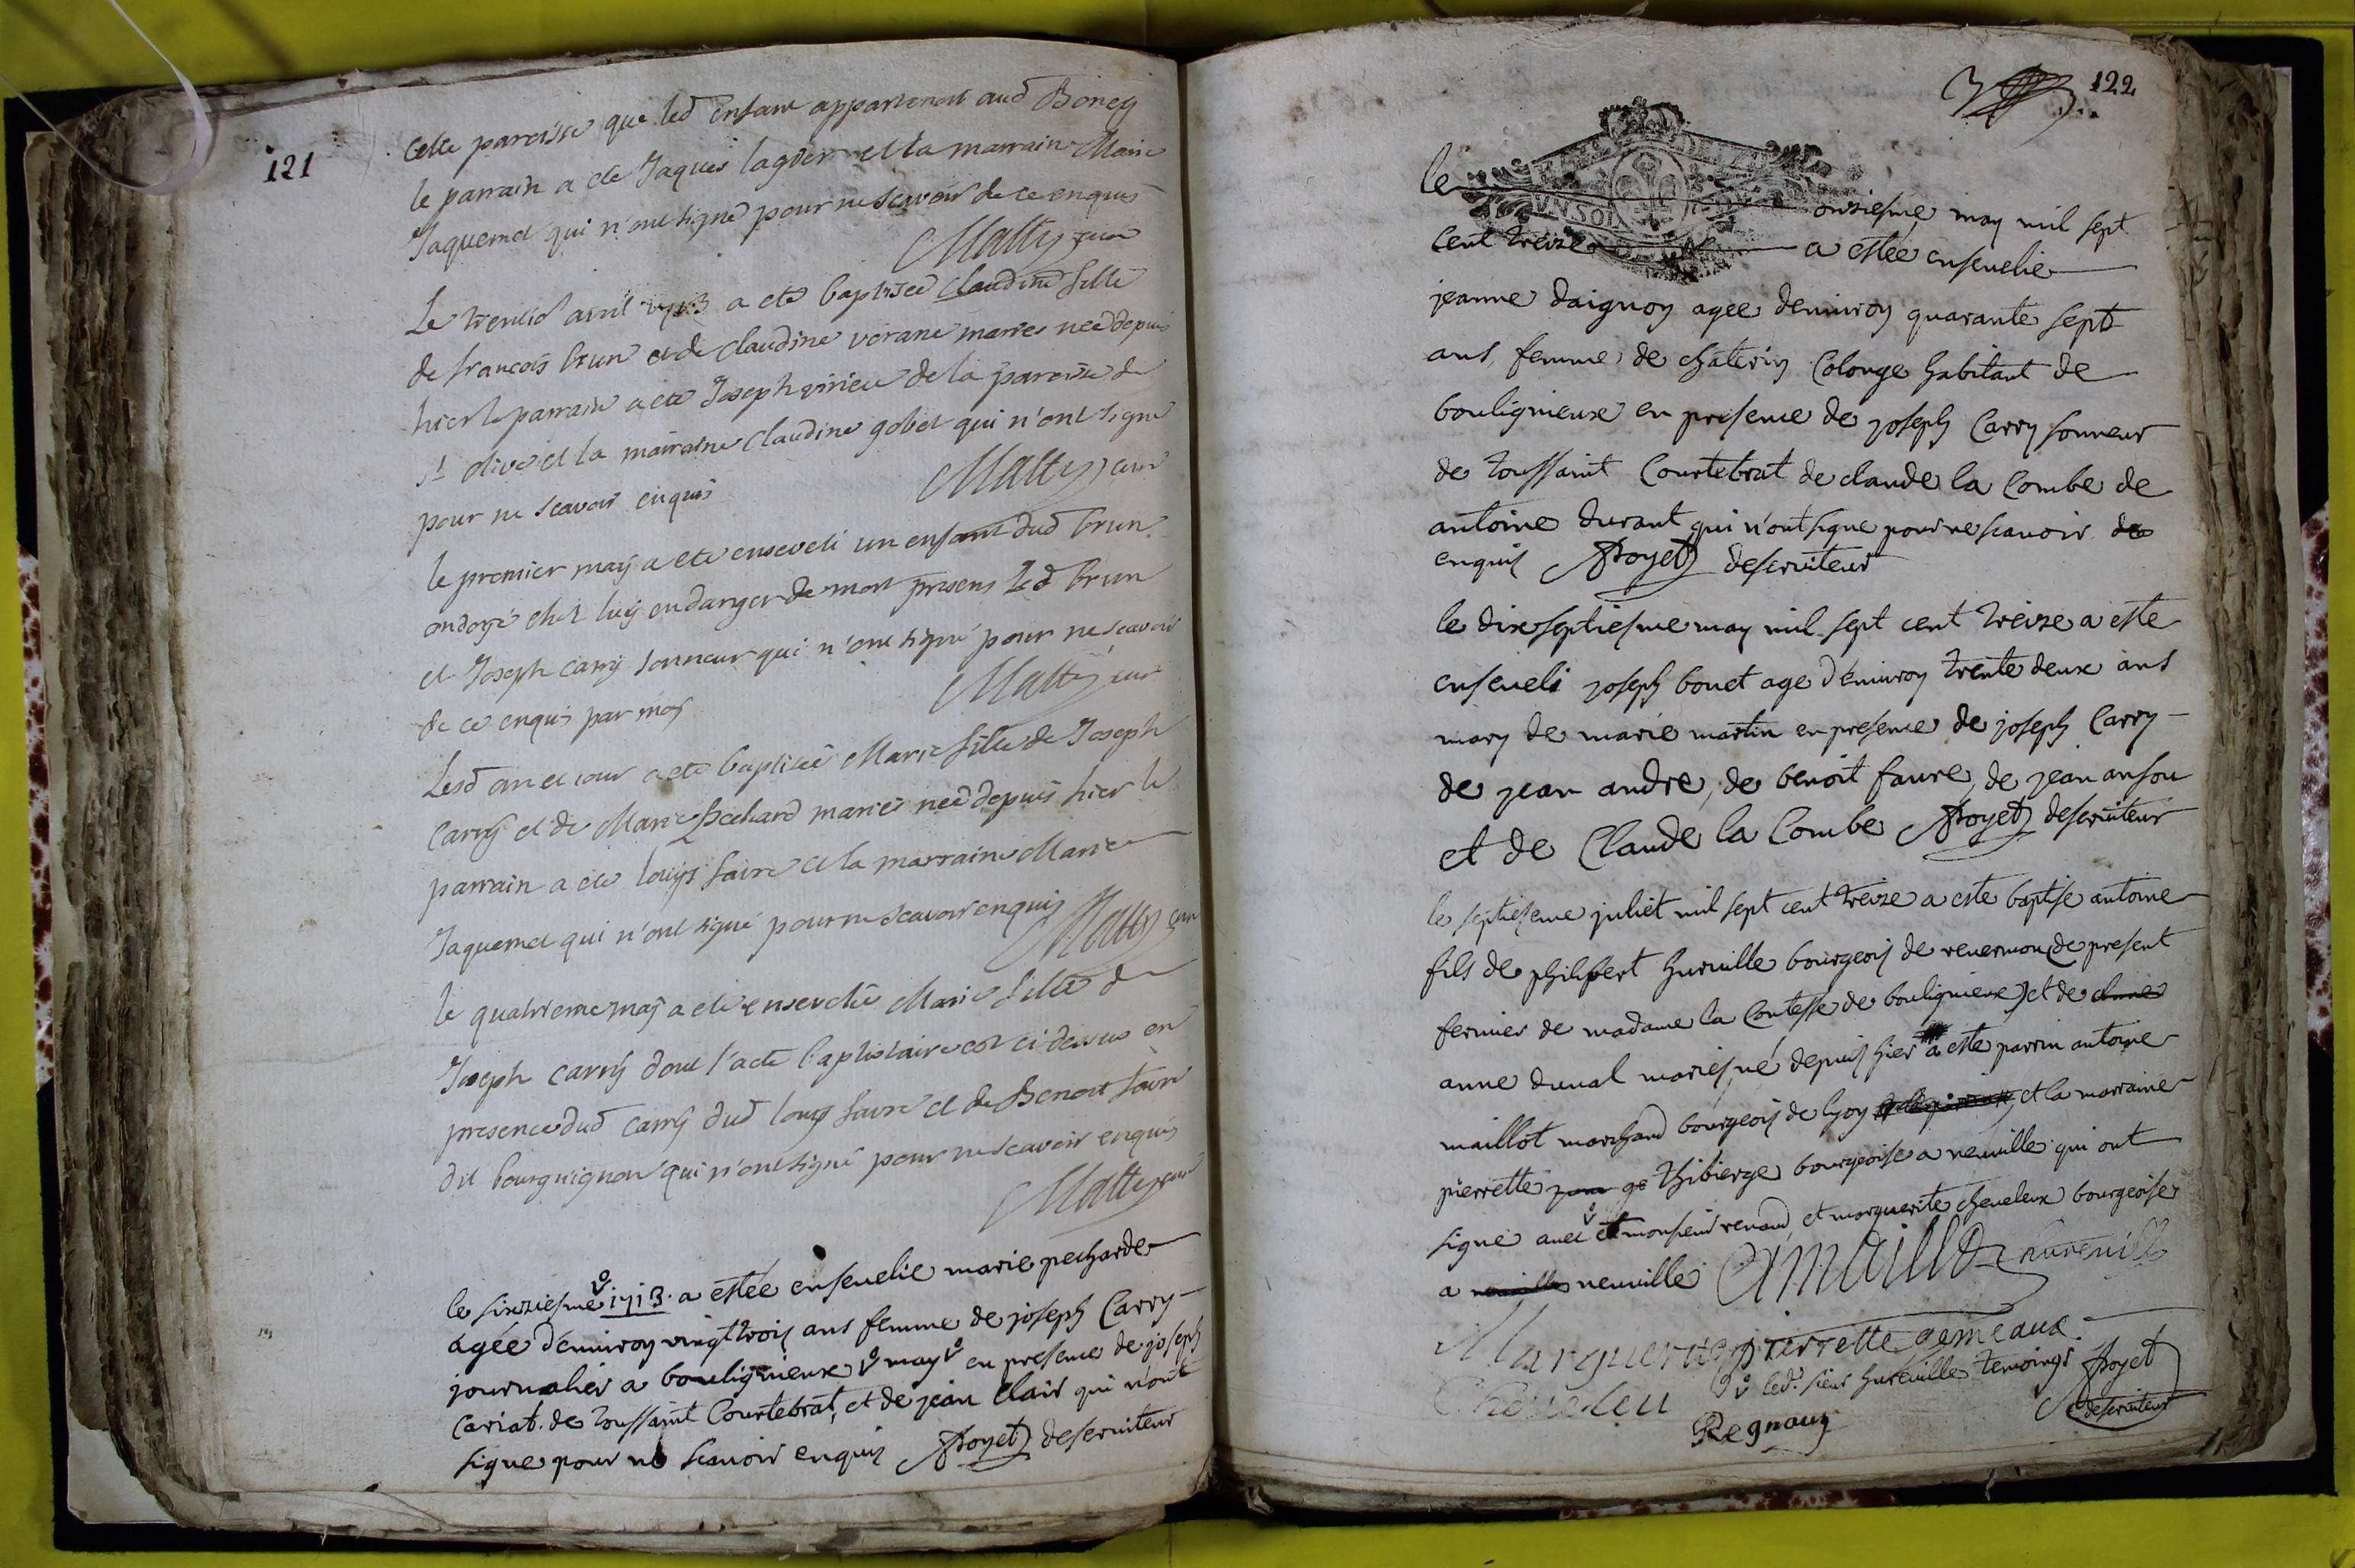 121
cette paroisse que led enfant appartenoit aud Boney
le parrain a ete Jaques lagier et la marraine Marie
Jaquemet qui n'ont signé pour ne scavoir de ce enquis
Matty cure
Le trentie avril 1713 a ete baptisée claudine fille
de francois brun et de claudine verane maries née depuis
hier le parrain a ete Joseph girieu de la paroisse de
st olive et la marraine claudine gobet qui n'ont signé
pour ne scavoir enquis
Matty cure
le premier may a ete enseveli un enfant dud brun
ondoyé chez luy en danger de mort presens led brun
et Joseph carry sonneur qui n'ont signé pour ne scavoir
de ce enquis par moy
Matty cure
Lesd an et jour a ete baptisée Marie fille de Joseph
Carry et de Marie Pechard mariés née depuis hier le
parrain a ete louys favre et la marraine Marie
Jaquemet qui n'ont signé pour ne scavoir enquis
Matty cure
le quatrieme may a ete ensevelie Marie fille de
Joseph carry dont l'acte baptistaire est ci dessus en
presence dud carry dud louys favre et de Benoit favre
dit bourguignon qui n'ont signé pour ne scavoir enquis
Matty cure
le sixziesme 1713 a estée ensevelie marie pecharde
agée d'enuiron vingt trois ans femme de joseph Carry
journalier a bouligneux may en presence de joseph
Cariat de toussaint Courtebrat, et de jean Clair qui n'ont
signe pour ne scauoir enquis Royet deseruiteur
122
le onziesme may mil sept
cent treize a estée enseuelie
jeanne daignoy agee denuiron quarante sept
ans femme de chaterin Colonge habitant de
bouligneux en presence de joseph Carry sonneur
de toussaint Courtebrat de claude la Combe de
antoine durant qui n'ont signe pour ne scauoir de
enquis Royet deseruiteur
le dixseptiesme may mil sept cent treize a este
enseueli joseph bouet age d'enuiron trente deux ans
mary de marie martin en presence de joseph Carry
de jean andre, de benoit faure, de jean ansou
et de Claude la Combe Royet deseruiteur
le septiesme juliet mil sept cent treize a este baptise antoine
fils de philibert hureuille bourgeois de reuermon de present
fermier de madame la Contesse de bouligneux et de
anne duual maries né depuis hier a este parrin antoine
maillot marchand bourgeois de lyon et la marraine
pierrette ge thibierge bourgeoise a neuuille qui ont
signe auec et monsieur renaud et marguerite cheueleux bourgeoise
a neuuille AMaillot hureuille
Marguerite pierrette gemeaux
Cheueleu led. sieur hureuille temoings Royet
Regnaux deseruiteur